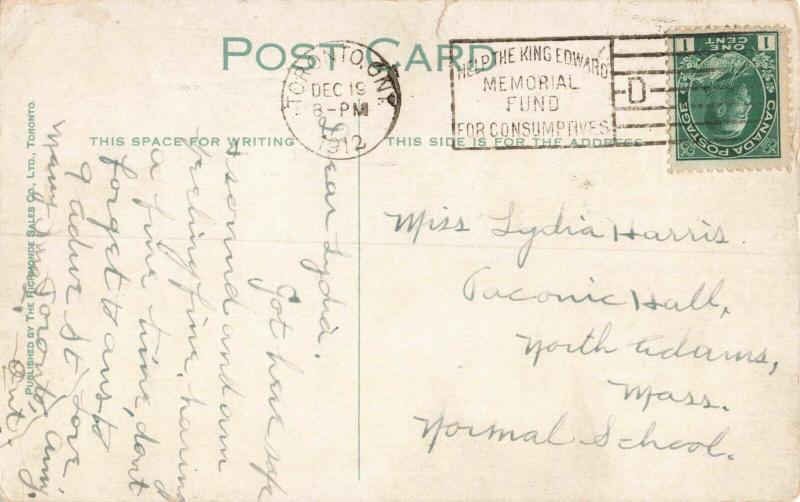 POST CARD
TORONTO, ONT.
DEC 19
8-PM
1912
HELP THE KING EDWARD
MEMORIAL
FUND
FOR CONSUMPTIVES
D
1 ONE CENT 1
CANADA POSTAGE
THIS SPACE FOR WRITING
THIS SIDE IS FOR THE ADDRESS
PUBLISHED BY THE RICHMONDE SALES CO., LTD., TORONTO.
Dear Lydia.
Got here safe
& sound and am
feeling fine, having
a fine time, don't
forget to ans to
St. Love
Toronto,
Ont.
Miss Lydia Harris.
Taconic Hall,
North Adams,
Mass.
Normal School.